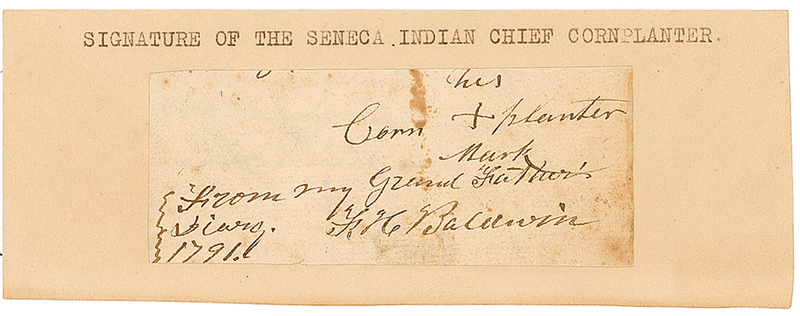 SIGNATURE OF THE SENECA INDIAN CHIEF CORNPLANTER.
his
Corn + planter
Mark
From my Grand Father's
Diary. F H Baldwin
1791.